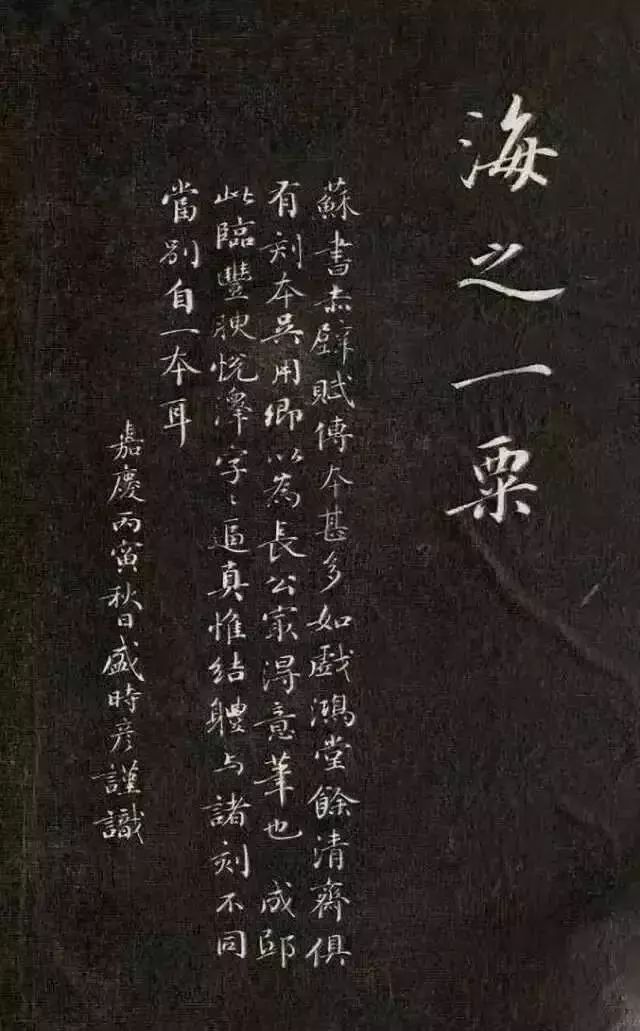 海之一粟
蘇書赤壁賦傳本甚多如戲鴻堂餘清齋俱
有刻本吳用卿以為長公冣得意筆也 成邸
此臨豐腴悦澤字〻逼真惟結體与諸刻不同
當别自一本耳
嘉慶丙寅秋日盛時彦謹識